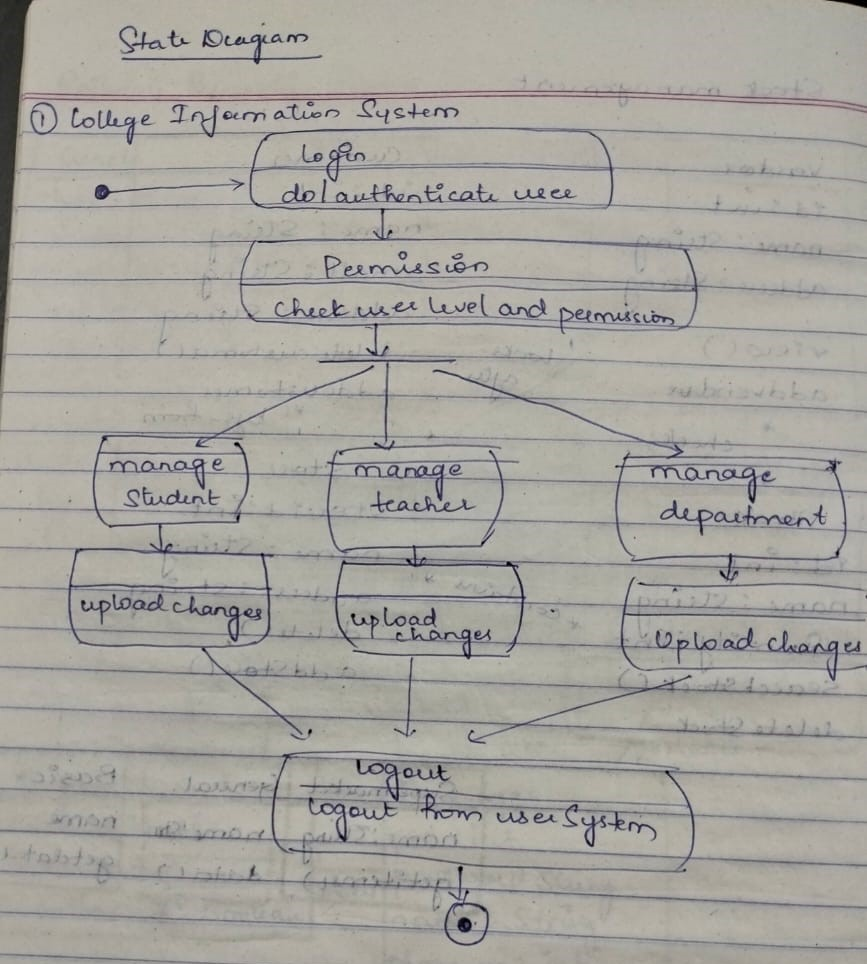 State Diagram
① College Information System
Login
do/authenticate user
Permission
Check user level and permission
manage
student
manage
teacher
manage
department
upload changes
upload
changes
Upload changes
Logout
Logout from user System